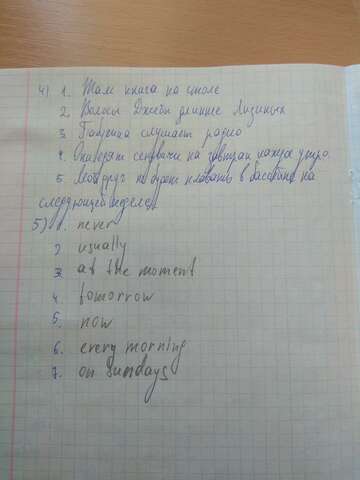 4) 1. Там книга на столе
2. Волосы Джейн длиннее Лизиных
3. Бабушка слушает радио
4. сендвичи на завтрак каждое утро.
5. Мой друг не будет плавать в бассейне на
следующей неделе.
5) 1. never
2 usually
3. at the moment
4. tomorrow
5. now
6. every morning
7. on sundays